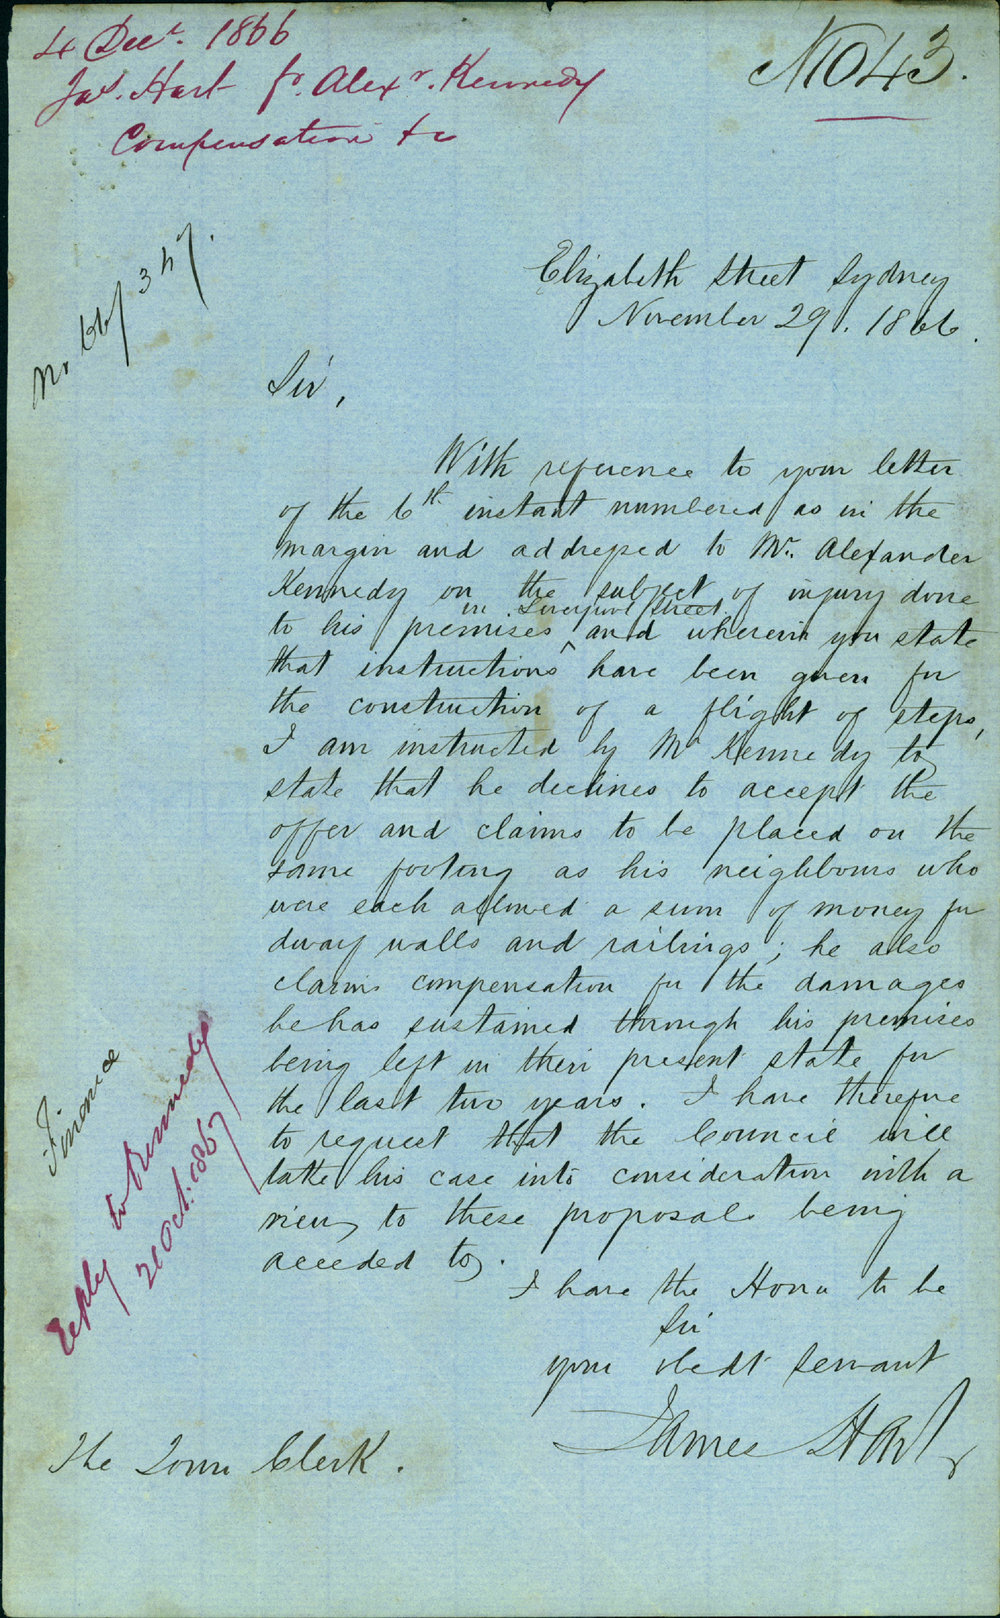 4 Decr. 1866
Jas. Hart fr. Alexr. Kennedy
Compensation &c
No 43.
No 66/357.
Elizabeth Street Sydney
November 29. 1866.
Sir,
With reference to your letter
of the 6th instant numbered as in the
margin and addressed to Mr. Alexander
Kennedy on the subject of injury done
in Liverpool Street.
to his premises ^ and wherein you state
that instructions have been given for
the construction of a flight of steps,
I am instructed by Mr Kennedy to
state that he declines to accept the
offer and claims to be placed on the
same footing as his neighbours who
were each allowed a sum of money for
dwarf walls and railings; he also
claims compensation for the damages
he has sustained through his premises
being left in their present state for
the last two years. I have therefore
to request that the Council will
take his case into consideration with a
view to these proposals being
acceded to.
I have the Honor to be
Sir
your obedt servant
James Hart
The Town Clerk.
Finance
Reply to Kennedy
21 Oct. 1867